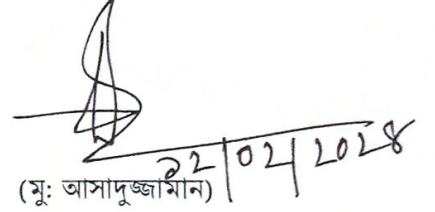 ১২|০২|২০২৪
(মু: আসাদুজ্জামান)